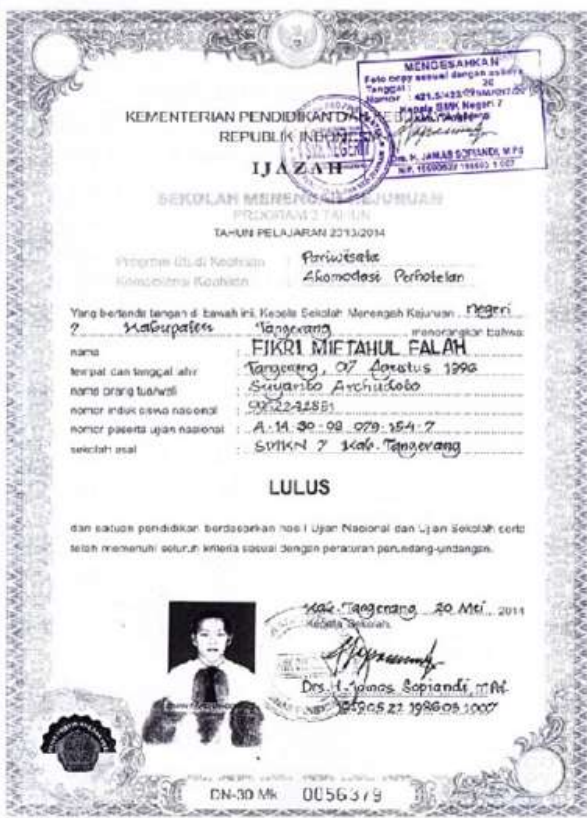 MENGESAHKAN
Foto copy sesuai dengan aslinya
Tanggal : 20
Nomor :
Kepala SMK Negeri 7
Drs. H. JAMAS SOPIANDI, M.Pd
KEMENTERIAN PENDIDIKAN DAN
REPUBLIK INDONESIA
IJAZAH
SEKOLAH MENENGAH KEJURUAN
PROGRAM 3 TAHUN
TAHUN PELAJARAN 2013/2014
Program Studi Keahlian : Pariwisata
Kompetensi Keahlian : Akomodasi Perhotelan
Yang bertanda tangan di bawah ini, Kepala Sekolah Menengah Kejuruan Negeri
7 Kabupaten Tangerang menerangkan bahwa:
nama : FIKRI MIFTAHUL FALAH
tempat dan tanggal lahir : Tangerang, 07 Agustus 1996
nama orang tua/wali : Suyanto
nomor induk siswa nasional :
nomor peserta ujian nasional :
sekolah asal : SMKN 7 Kab. Tangerang
LULUS
dari satuan pendidikan berdasarkan hasil Ujian Nasional dan Ujian Sekolah serta
telah memenuhi seluruh kriteria sesuai dengan peraturan perundang-undangan.
Kab. Tangerang 20 Mei 2014
Kepala Sekolah,
Drs. H. Jamas Sopiandi, M.Pd
DN-30 Mk 0056379